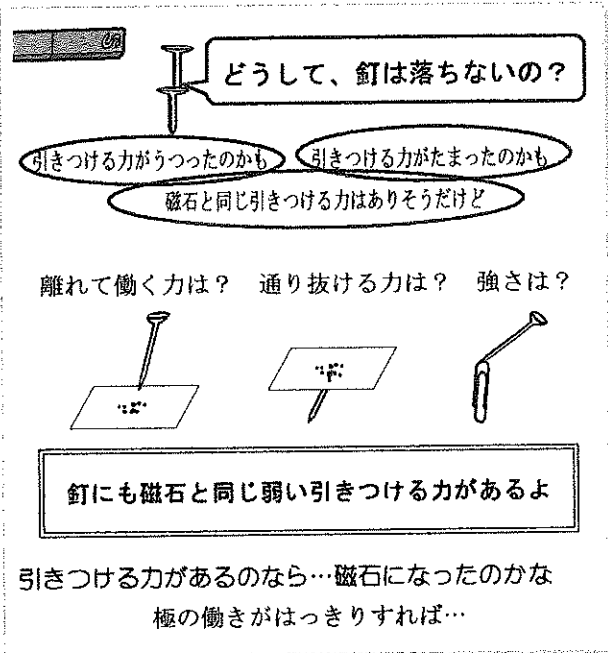 どうして、釘は落ちないの？
引きつける力がうつったのかも
引きつける力がたまったのかも
磁石と同じ引きつける力はありそうだけど
離れて働く力は？　通り抜ける力は？　強さは？
釘にも磁石と同じ弱い引きつける力があるよ
引きつける力があるのなら…磁石になったのかな
極の働きがはっきりすれば…